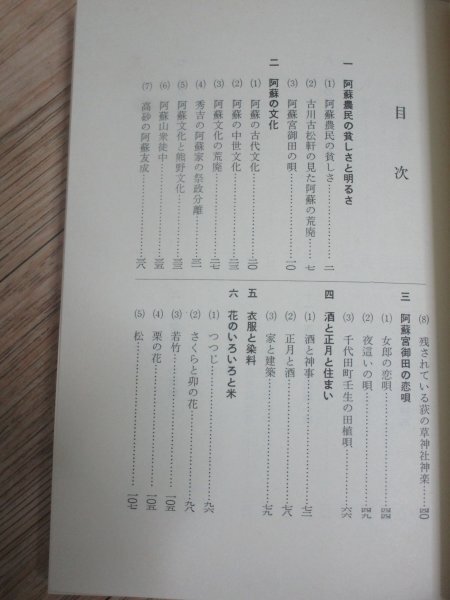 目次
一 阿蘇農民の貧しさと明るさ
(1) 阿蘇農民の貧しさ……二
(2) 古川古松軒の見た阿蘇の荒廃……七
(3) 阿蘇宮御田の唄……一〇
二 阿蘇の文化
(1) 阿蘇の古代文化……二〇
(2) 阿蘇の中世文化……二三
(3) 阿蘇文化の荒廃……二七
(4) 秀吉の阿蘇家の祭政分離……三一
(5) 阿蘇文化と熊野文化……三三
(6) 阿蘇山衆徒中……三五
(7) 高砂の阿蘇友成……三八
(8) 残されている荻の草神社神楽……四〇
三 阿蘇宮御田の恋唄
(1) 女郎の恋唄……四四
(2) 夜這いの唄……四九
(3) 千代田町壬生の田植唄……六六
四 酒と正月と住まい
(1) 酒と神事……七二
(2) 正月と酒……七八
(3) 家と建築……七九
五 衣服と染料
六 花のいろいろと米
(1) つつじ……九六
(2) さくらと卯の花……九八
(3) 若竹……一〇五
(4) 栗の花……一〇五
(5) 松……一〇七